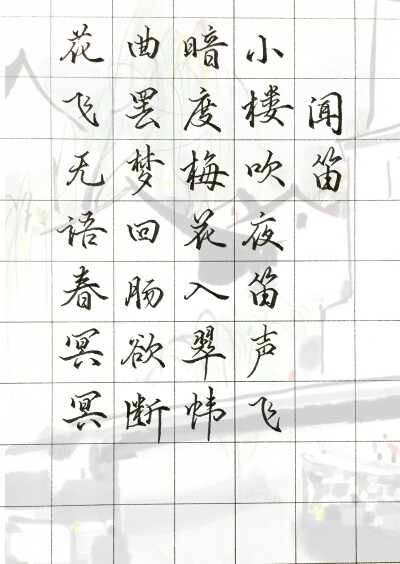 闻笛
小楼吹夜笛声飞
暗度梅花入翠帏
曲罢梦回肠欲断
花飞无语春冥冥